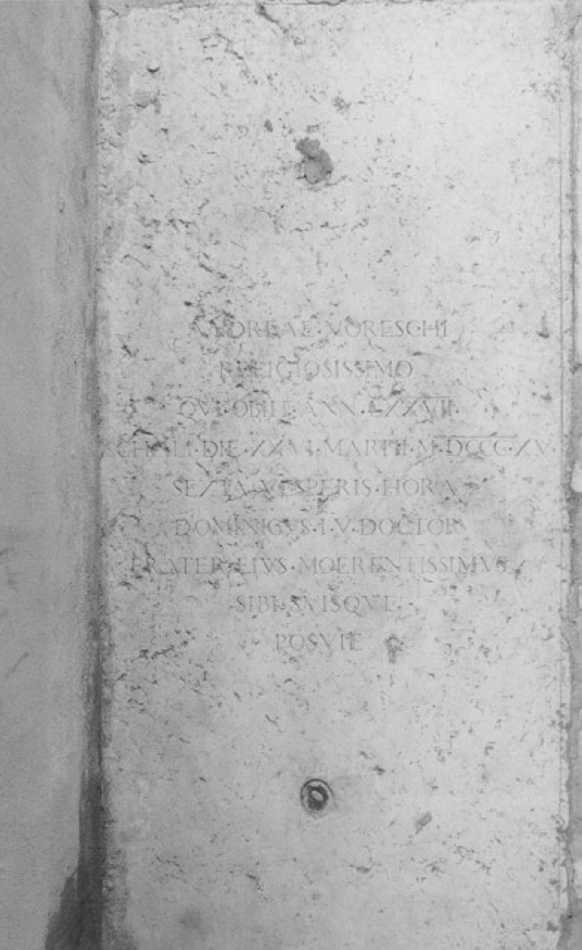 ANDREAE·MORESCHI
RELIGIOSISSIMO
QVI·OBIIT·ANN·LXXVII·
DIE·XXVI·MARTII·M·DCCC·XV·
SEXTA·VESPERIS·HORA
DOMINICVS·I·V·DOCTOR
FRATER·EIVS·MOERENTISSIMVS
SIBI·SVISQVE
POSVIT